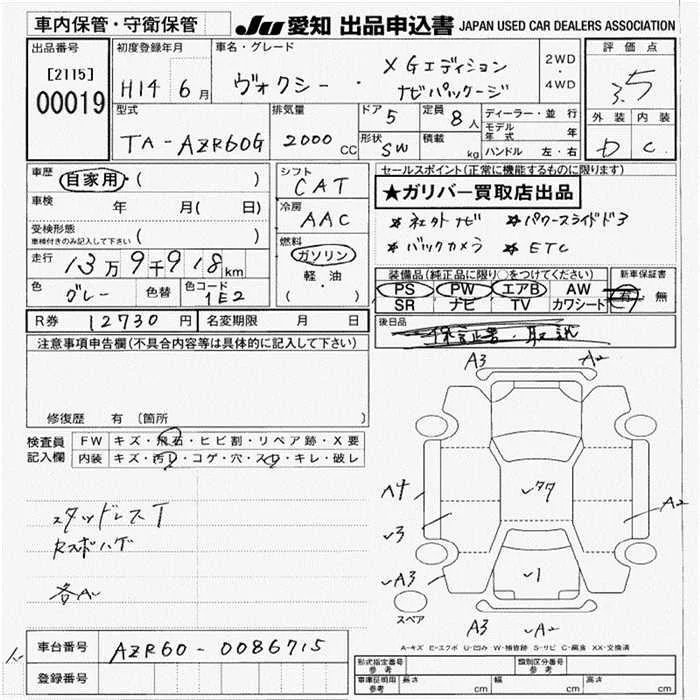 車内保管・守衛保管
JU 愛知 出品申込書 JAPAN USED CAR DEALERS ASSOCIATION
出品番号 初度登録年月 車名・グレード 評価点
[2115]
00019
H14 6月
ヴォクシー・
XGエディション
ナビパッケージ
2WD
・
4WD
3.5
型式 排気量 ドア 5 定員 8人 ディーラー・並行
モデル年式 年
ハンドル 左・右
TA-AZR60G 2000 CC 形状 SW 積載 kg
外装 内装
D C
車歴 自家用・( )
シフト CAT
セールスポイント(正常に機能するものに限ります)
★ガリバー買取店出品
車検 年 月( 日)
冷房 AAC
* 社外ナビ * パワースライドドア
受検形態
車検付きのみ記入して下さい ( )
燃料 ガソリン
軽・油
( ・ )
* バックカメラ * ETC
走行 13万9千918km
装備品(純正品に限り○をつけてください) 新車保証書
PS PW エアB AW 有・無
色 グレー 色替 色コード 1E2
SR ナビ TV カワシート
R券 12730円 名変期限 月 日
後日品 保証書・取説
注意事項申告欄(不具合内容等は具体的に記入して下さい)
修復歴 有 〔箇所
検査員
記入欄
FW キズ・飛石・ヒビ割・リペア跡・X要
内装 キズ・汚レ・コゲ・穴・スレ・キレ・破レ
A3 A2
スタッドレスT
Rスポハゲ
各A
A4
3
A3
A2
1
A3 A2
スペア
A-キズ E-エクボ U-凹み W-補修跡 S-サビ C-腐食 XX-交換済
車台番号 AZR60-0086715
登録番号
形式指定番号 参考 類別区分番号 参考
車庫証明用 参考 長さ cm 幅 cm 高さ cm